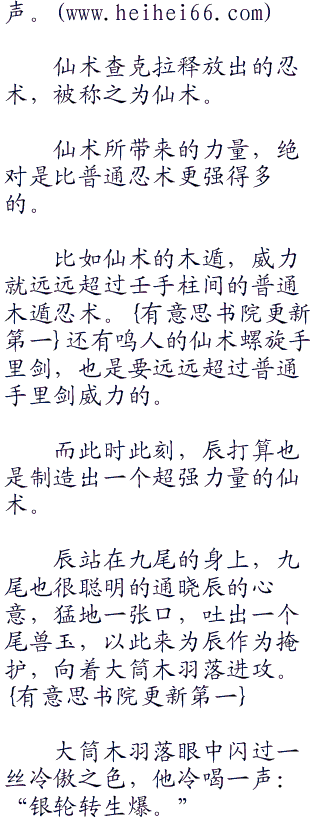 声。(www.heihei66.com)
仙术查克拉释放出的忍
术，被称之为仙术。
仙术所带来的力量，绝
对是比普通忍术更强得多
的。
比如仙术的木遁，威力
就远远超过壬手柱间的普通
木遁忍术。{有意思书院更新
第一}还有鸣人的仙术螺旋手
里剑，也是要远远超过普通
手里剑威力的。
而此时此刻，辰打算也
是制造出一个超强力量的仙
术。
辰站在九尾的身上，九
尾也很聪明的通晓辰的心
意，猛地一张口，吐出一个
尾兽玉，以此来为辰作为掩
护，向着大筒木羽落进攻。
{有意思书院更新第一}
大筒木羽落眼中闪过一
丝冷傲之色，他冷喝一声：
“银轮转生爆。”